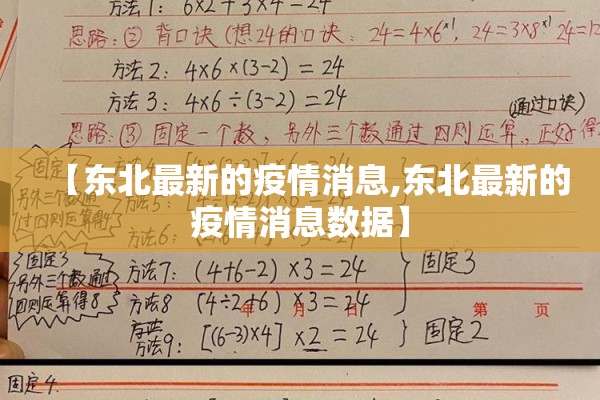 方法1: 6×2+3×4=24
思路:② 背口诀 (想24的口诀: 24=4×6^×1, 24=3×8^×1 24=12
方法2: 4×6×(3-2)=24
方法3: 4×6÷(3-2)=24
(通过口诀)
思路:③ 固定一个数, 另外三个数通过四则运算, 正好得
【东北最新的疫情消息,东北最新的
疫情消息数据】
固定4
另外三个数通
过四则运算得
方法5:
方法6:
固定3
另外三个数通过
四则运算得8
方法7: (4+6-2)×3=24
固定3
方法8 (4÷2+6)×3=24
年 月 日 第 页
方法9: [(6-3)×4]×2=24 } 固定2
固定4.